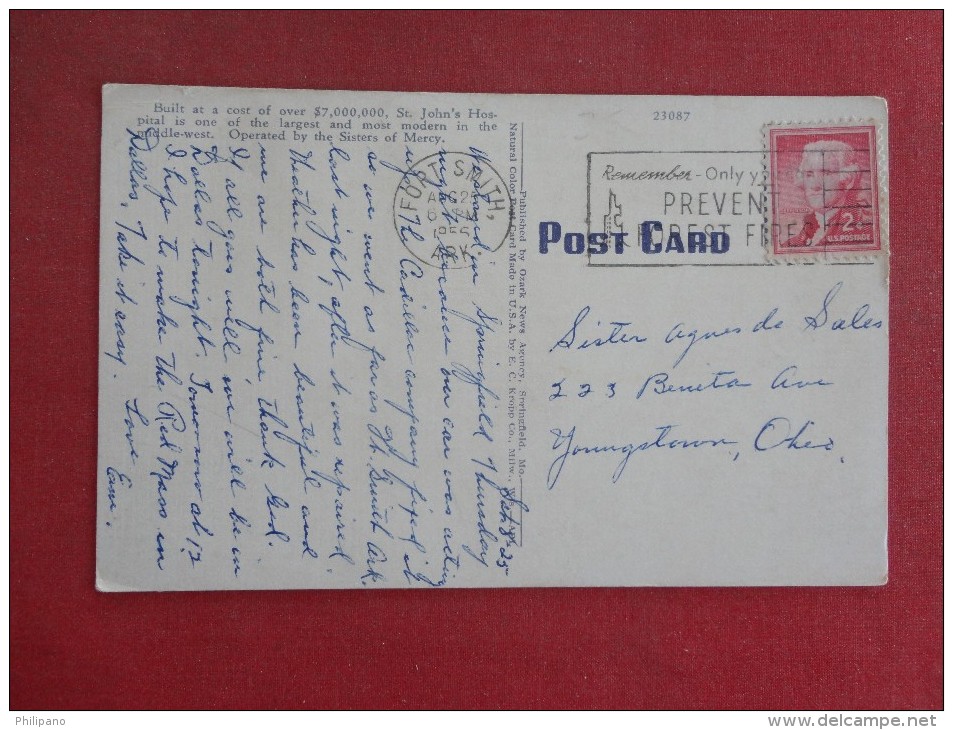 Built at a cost of over $7,000,000, St. John's Hos-
pital is one of the largest and most modern in the
middle-west. Operated by the Sisters of Mercy.
23087
Remember - Only y
PREVENT
FOREST FIRES
FORT SMITH,
ARK.
2¢
U.S. POSTAGE
POST CARD
Published by Ozark News Agency, Springfield, Mo.
Natural Color Post Card Made in U.S.A. by E. C. Kropp Co., Milw., Wis.
Sat 8-25
We were in Springfield Thursday
night because our car was acting
up. The Cadillac company fixed it
so we went as far as Ft. Smith Ark.
last night, after it was repaired.
Weather has been beautiful and
we are both fine thank God.
If all goes well we will be in
Dallas tonight. Tomorrow at 12
I hope to make the Red Mass in
Dallas. Take it easy.
Love Em.
Sister Agnes de Sales
223 Benita Ave
Youngstown, Ohio.
Philipano
www.delcampe.net